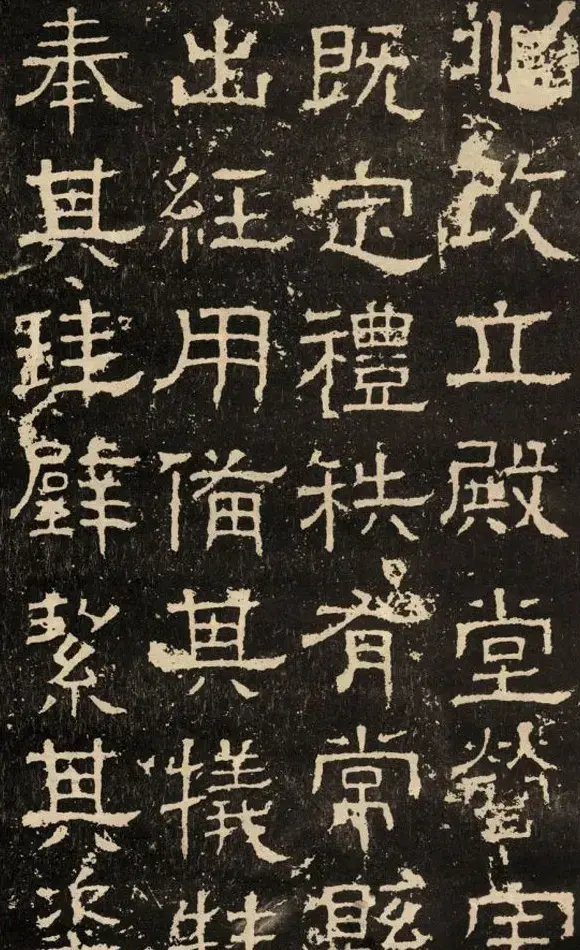 改立殿堂營宇
既定禮秩有常縣
出經用備其犧牲
奉其珪璧絜其粢